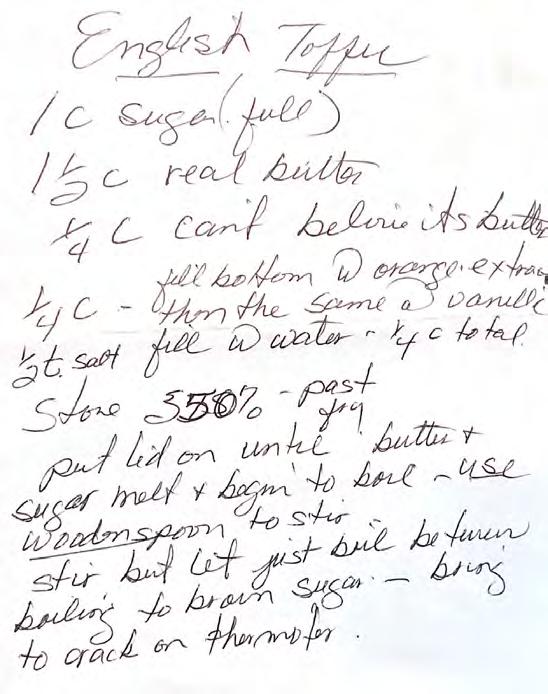 English Toffee
1 C sugar (full)
1 1/2 C real butter
1/4 C can't belive its butter
fill bottom w orange extrac
1/4 C - then the same w vanill
1/2 t. salt fill w water - 1/4 C total.
Stove - past
put lid on until butter +
sugar melt + begin to boil - use
woodonspoon to stir
stir but let just boil between
boiling to brown sugar - bring
to crack on thermoter.